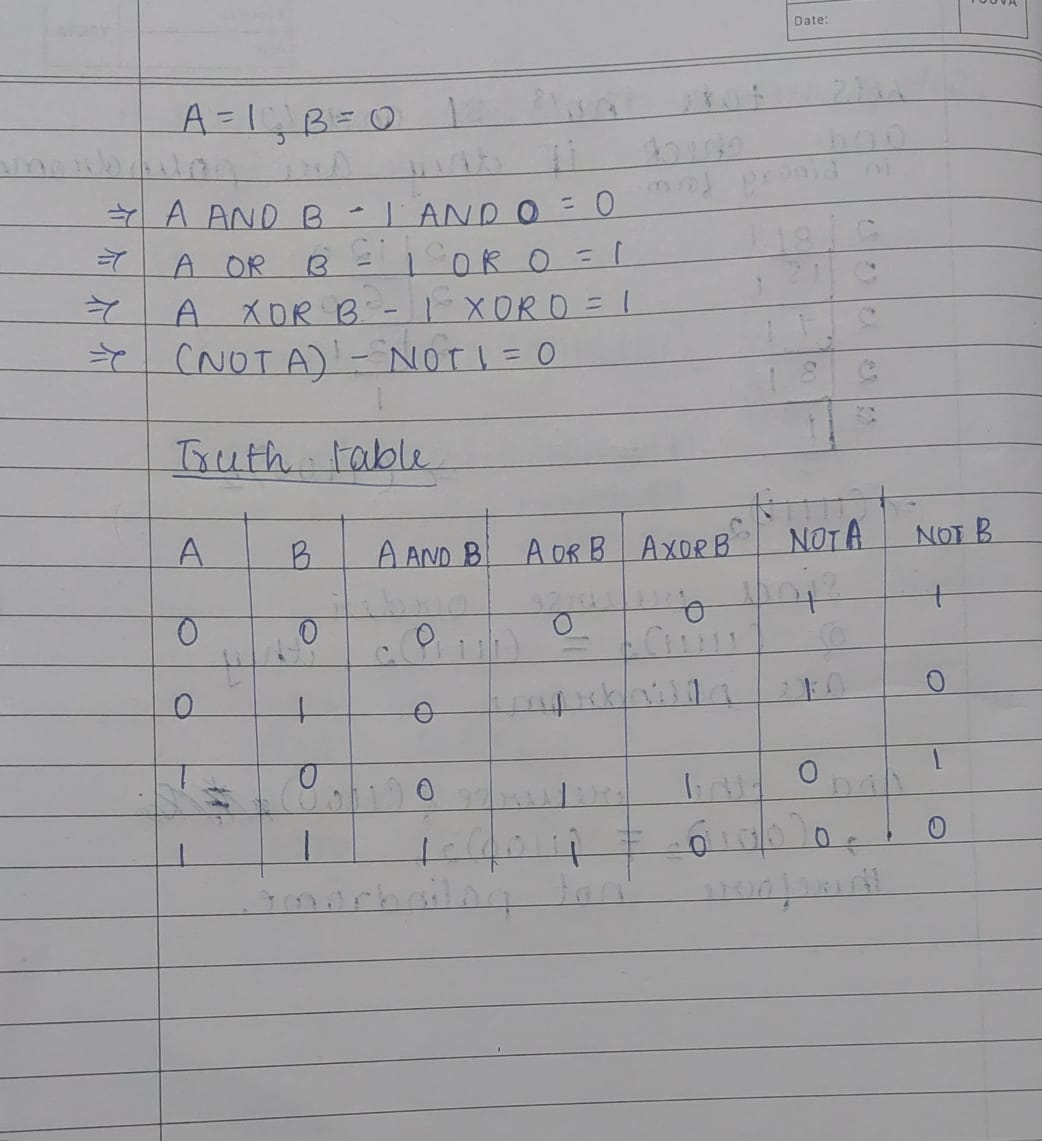 Date:
A = 1, B = 0
⇒ A AND B - 1 AND 0 = 0
⇒ A OR B = 1 OR 0 = 1
⇒ A XOR B - 1 XOR 0 = 1
⇒ (NOT A) - NOT 1 = 0
Truth table
A B A AND B A OR B A XOR B NOT A NOT B
0 0 0 0 0 1 1
0 1 0 1 1 1 0
1 0 0 1 1 0 1
1 1 1 1 0 0 0